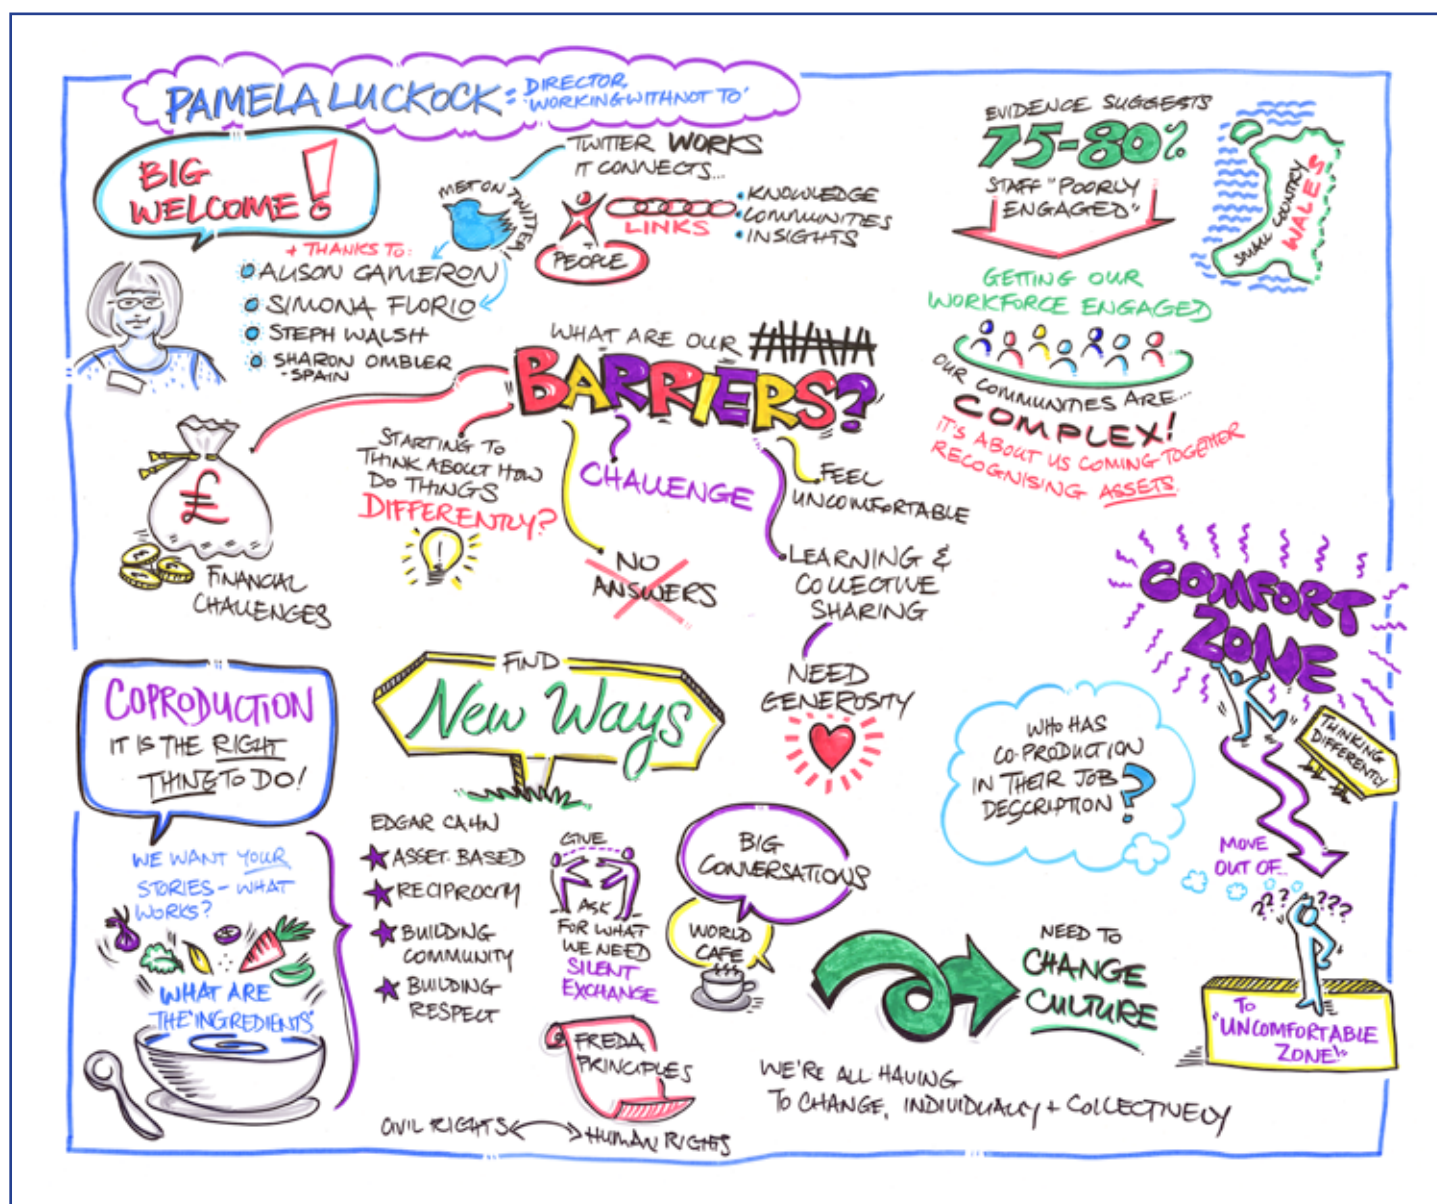 PAMELA LUCKOCK = DIRECTOR,
'WORKING WITH NOT TO'
BIG
WELCOME!
+ THANKS TO:
ALISON CAMERON
SIMONA FLORIO
STEPH WALSH
SHARON OMBLER
-SPAIN
MET ON TWITTER!
TWITTER WORKS
IT CONNECTS...
PEOPLE
LINKS
• KNOWLEDGE
• COMMUNITIES
• INSIGHTS
EVIDENCE SUGGESTS
75-80%
STAFF "POORLY
ENGAGED"
SMALL COUNTRY
WALES
GETTING OUR
WORKFORCE ENGAGED
OUR COMMUNITIES ARE...
COMPLEX!
IT'S ABOUT US COMING TOGETHER
RECOGNISING ASSETS.
WHAT ARE OUR
BARRIERS?
£
FINANCIAL
CHALLENGES
STARTING TO
THINK ABOUT HOW
DO THINGS
DIFFERENTLY?
!
NO
ANSWERS
CHALLENGE
FEEL
UNCOMFORTABLE
LEARNING &
COLLECTIVE
SHARING
NEED
GENEROSITY
COMFORT
ZONE
THINKING
DIFFERENTLY!
MOVE
OUT OF...
????????
TO
"UNCOMFORTABLE
ZONE!"
WHO HAS
CO-PRODUCTION
IN THEIR JOB
DESCRIPTION?
COPRODUCTION
IT IS THE RIGHT
THING TO DO!
WE WANT YOUR
STORIES - WHAT
WORKS?
WHAT ARE
THE 'INGREDIENTS'
FIND
New Ways
EDGAR CAHN
★ ASSET BASED
★ RECIPROCITY
★ BUILDING
COMMUNITY
★ BUILDING
RESPECT
GIVE
ASK
FOR WHAT
WE NEED
SILENT
EXCHANGE
BIG
CONVERSATIONS
WORLD
CAFE
FREDA
PRINCIPLES
CIVIL RIGHTS
HUMAN RIGHTS
NEED TO
CHANGE
CULTURE
WE'RE ALL HAVING
TO CHANGE, INDIVIDUALLY + COLLECTIVELY